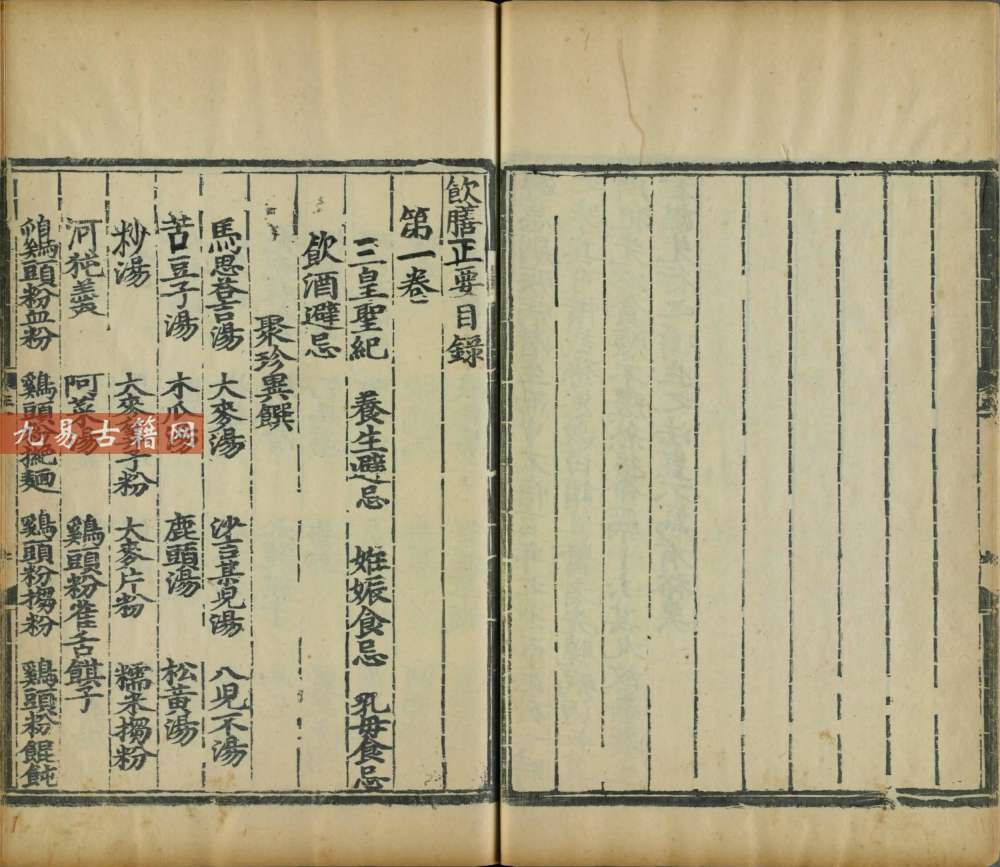 飲膳正要目錄
第一卷
三皇聖紀 養生避忌 姙娠食忌 乳母食忌
飲酒避忌
聚珍異饌
馬思荅吉湯 大麥湯 沙吉某兒湯 八兒不湯
苦豆子湯 木瓜湯 鹿頭湯 松黃湯
炒湯 大麥筭子粉 大麥片粉 糯米搊粉
河㹠羹 阿菜湯 鷄頭粉雀舌餺子
鷄頭粉血粉 鷄頭粉撧麵 鷄頭粉搊粉 鷄頭粉餛飩
九易古籍网